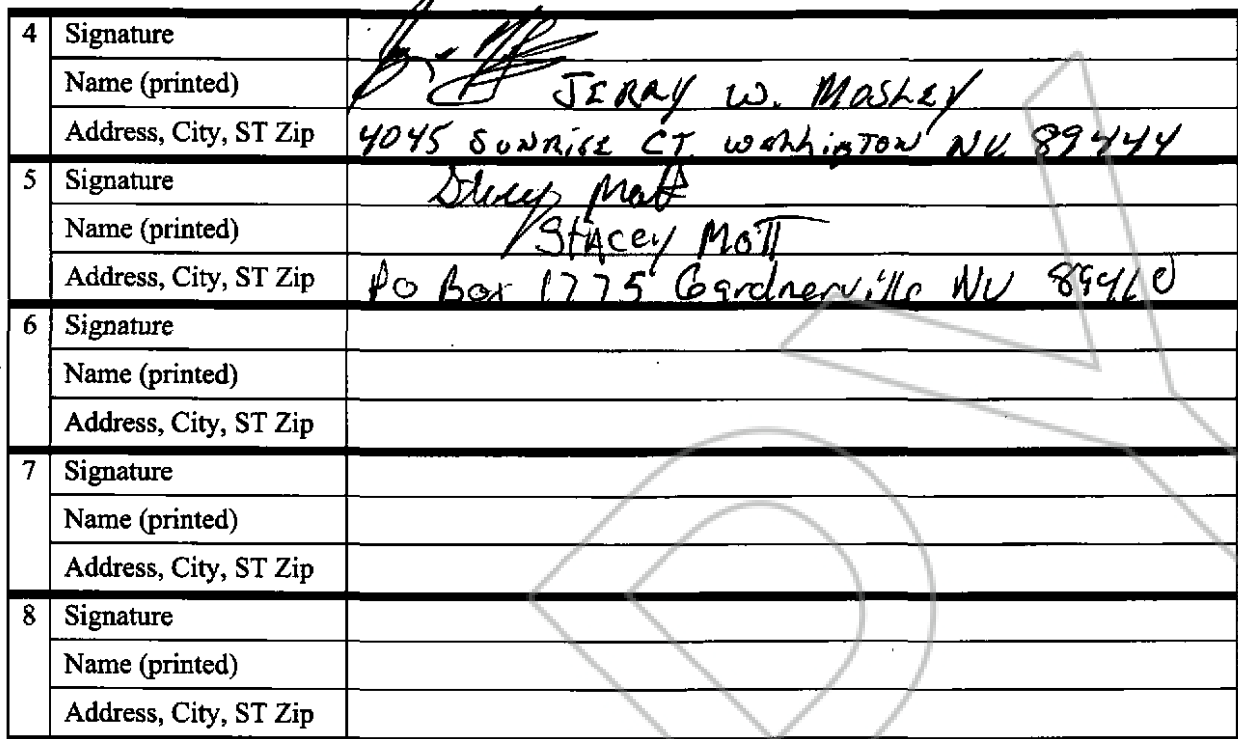 4 Signature
Name (printed) JERRY W. MOSLEY
Address, City, ST Zip 4045 SUNRISE CT. NV. 89444
5 Signature Stacey Mott
Name (printed) Stacey Mott
Address, City, ST Zip PO Box 1775 Gardnerville NV 89410
6 Signature
Name (printed)
Address, City, ST Zip
7 Signature
Name (printed)
Address, City, ST Zip
8 Signature
Name (printed)
Address, City, ST Zip